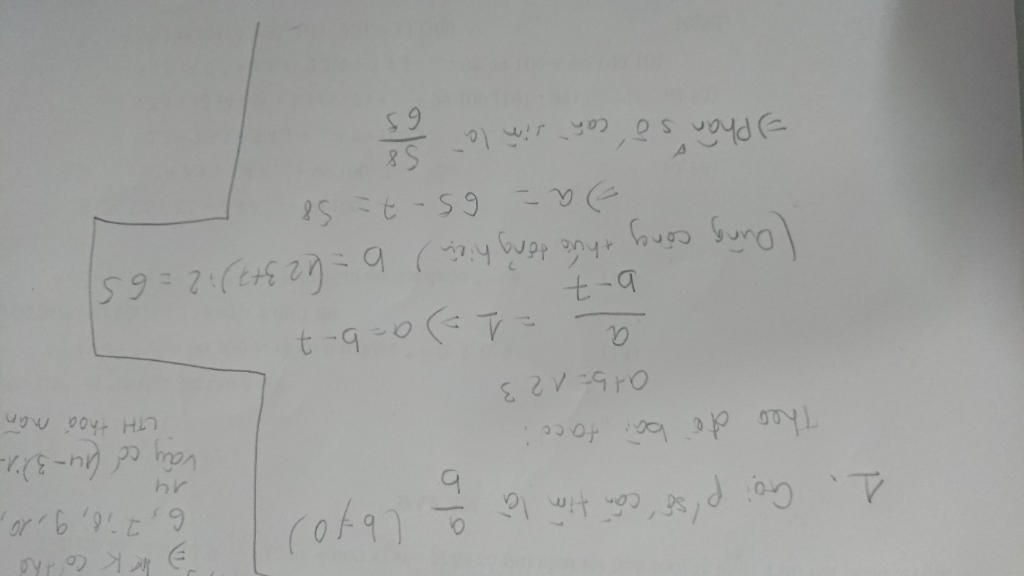 1. Gọi p/số cần tìm là a/b (b≠0)
Theo đề bài ta có:
a+b=123
a/(b-7) = 1 => a=b-7
(Dùng công thức tổng hiệu) b = (123+7):2 = 65
=> a = 65-7 = 58
=> Phân số cần tìm là 58/65
=> K có thể
6, 7, 8, 9, 10,
14
Vậy có (14-3):1
LTH thoả mãn